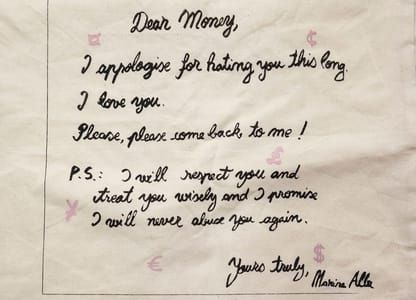 Dear Money,
¤ ¢
I appologise for hating you this long.
I love you.
Please, please come back to me !
£
P.S.: I will respect you and
treat you wisely and I promise
¥
I will never abuse you again.
€ $
Yours truly,